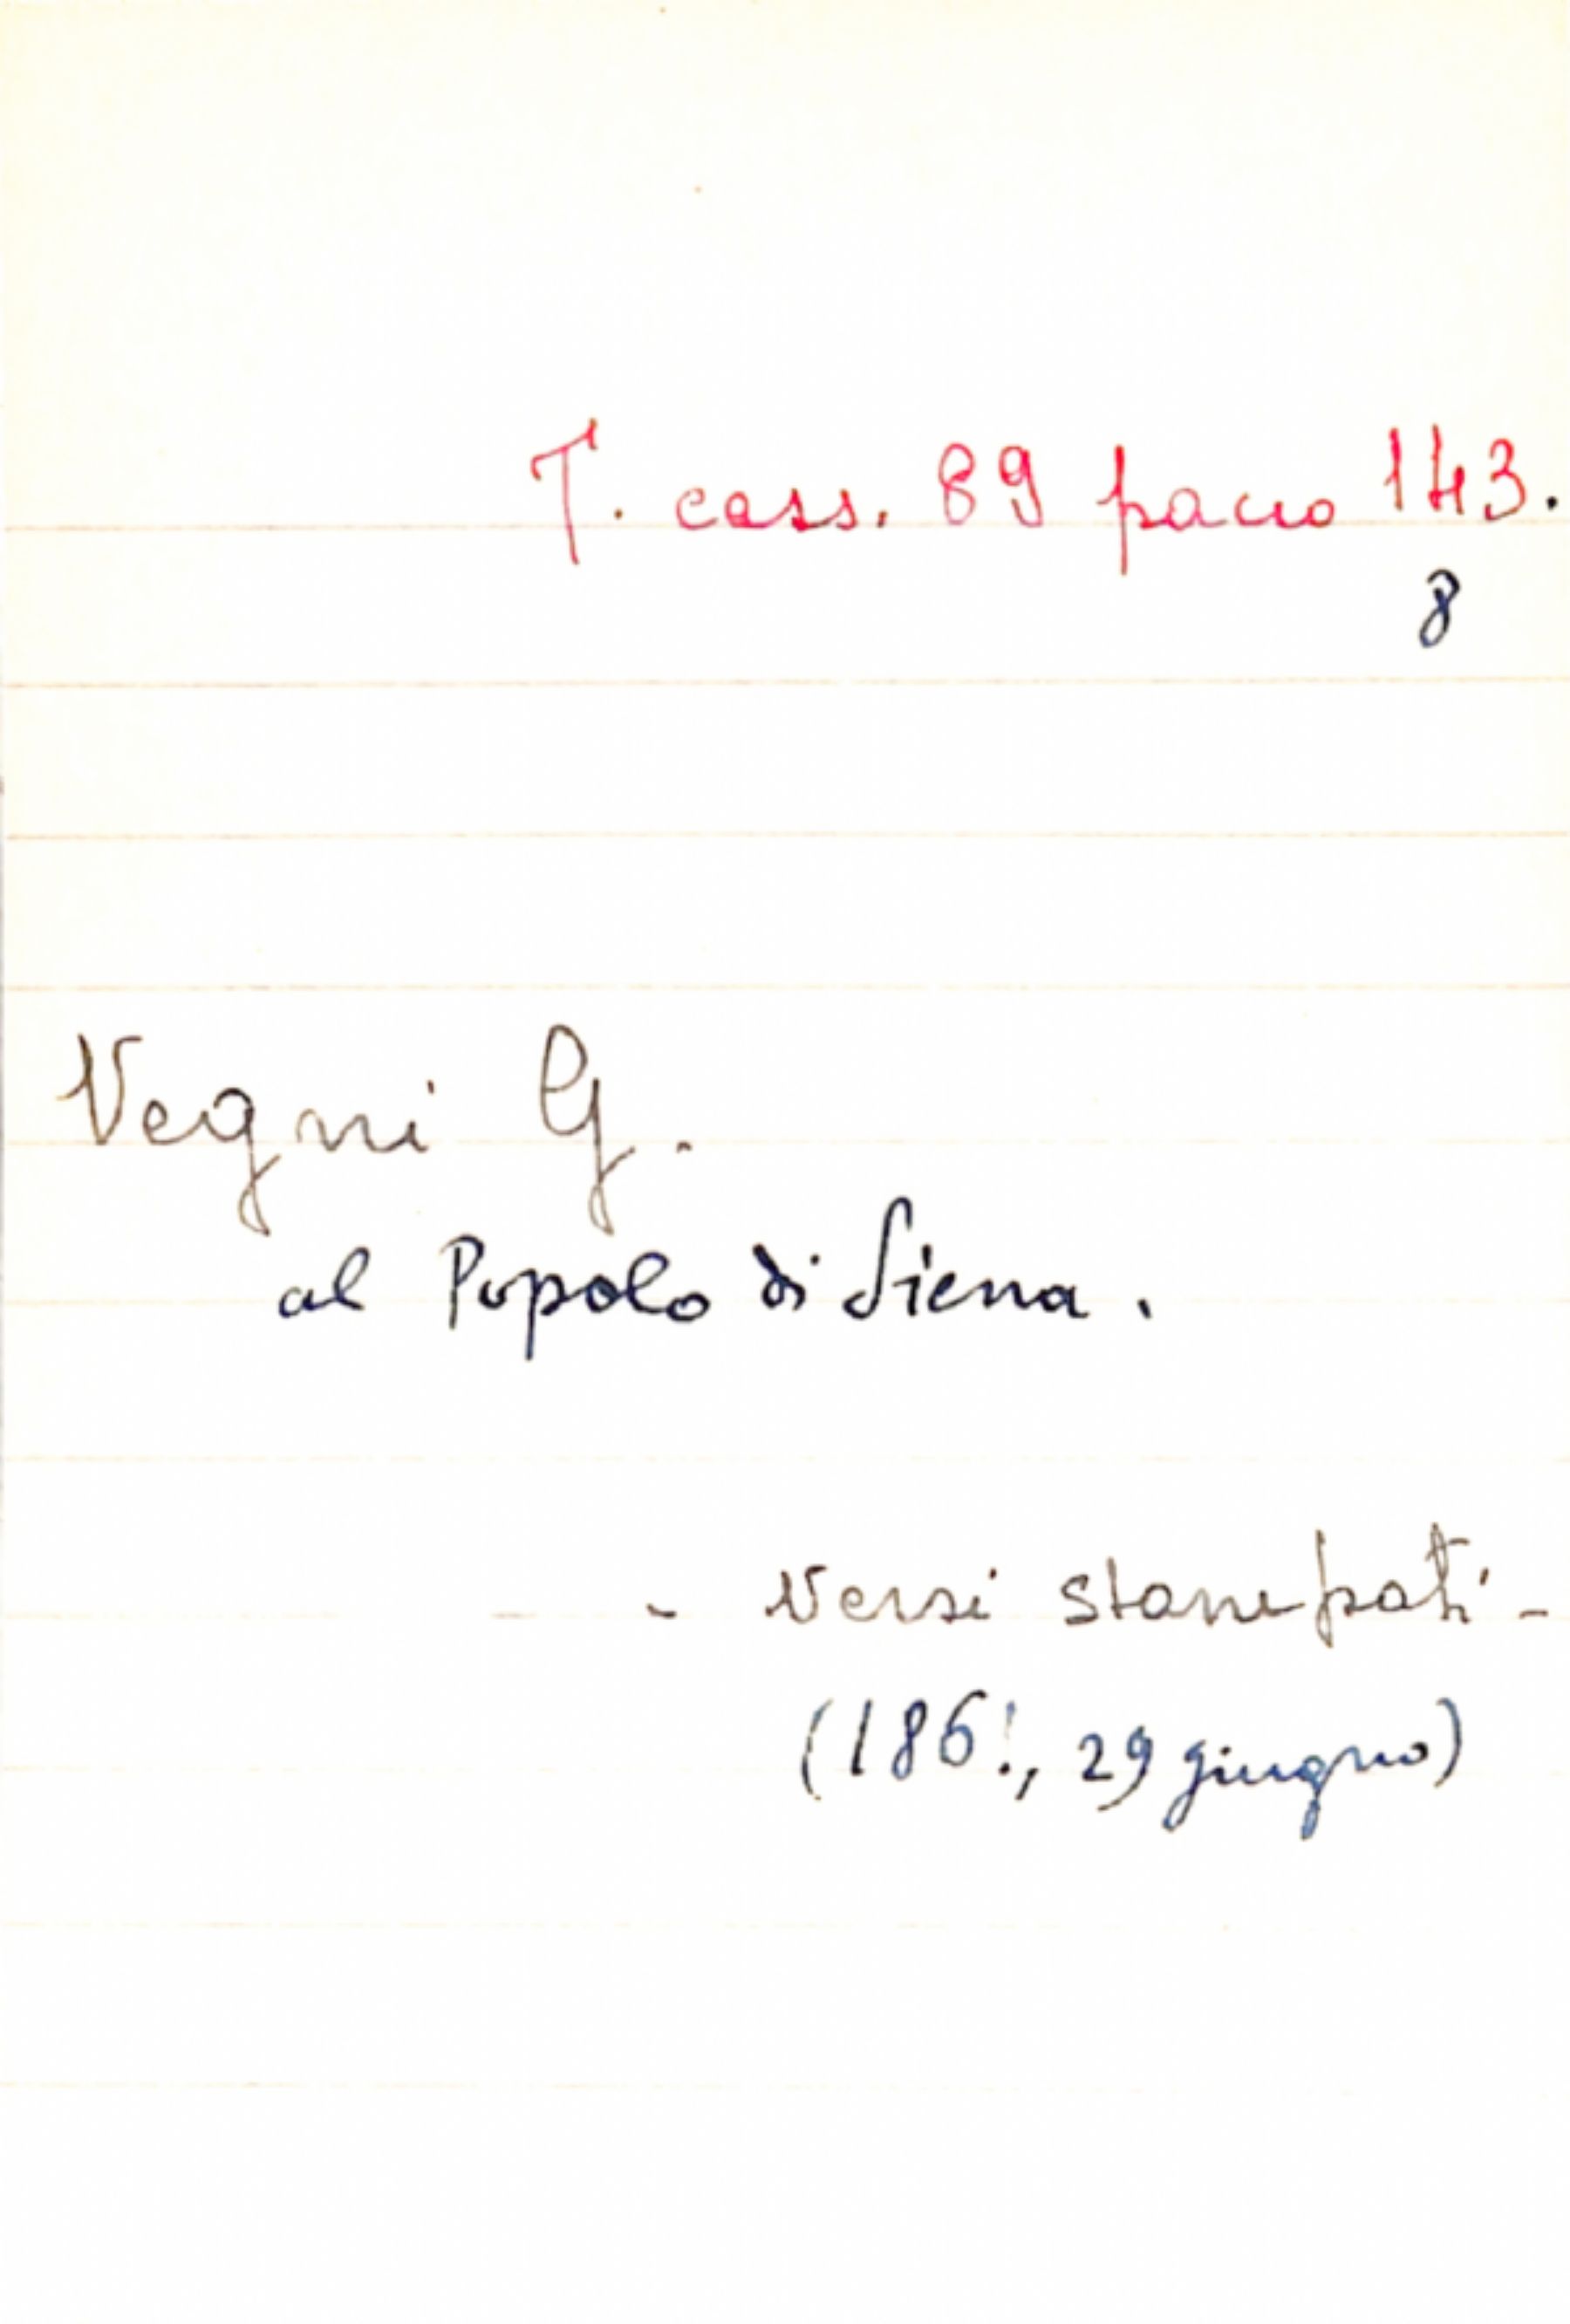 T. cass. 89 pacco 143.
8
Vegni G.
al Popolo di Siena.
- Versi stampati -
(186!, 29 giugno)